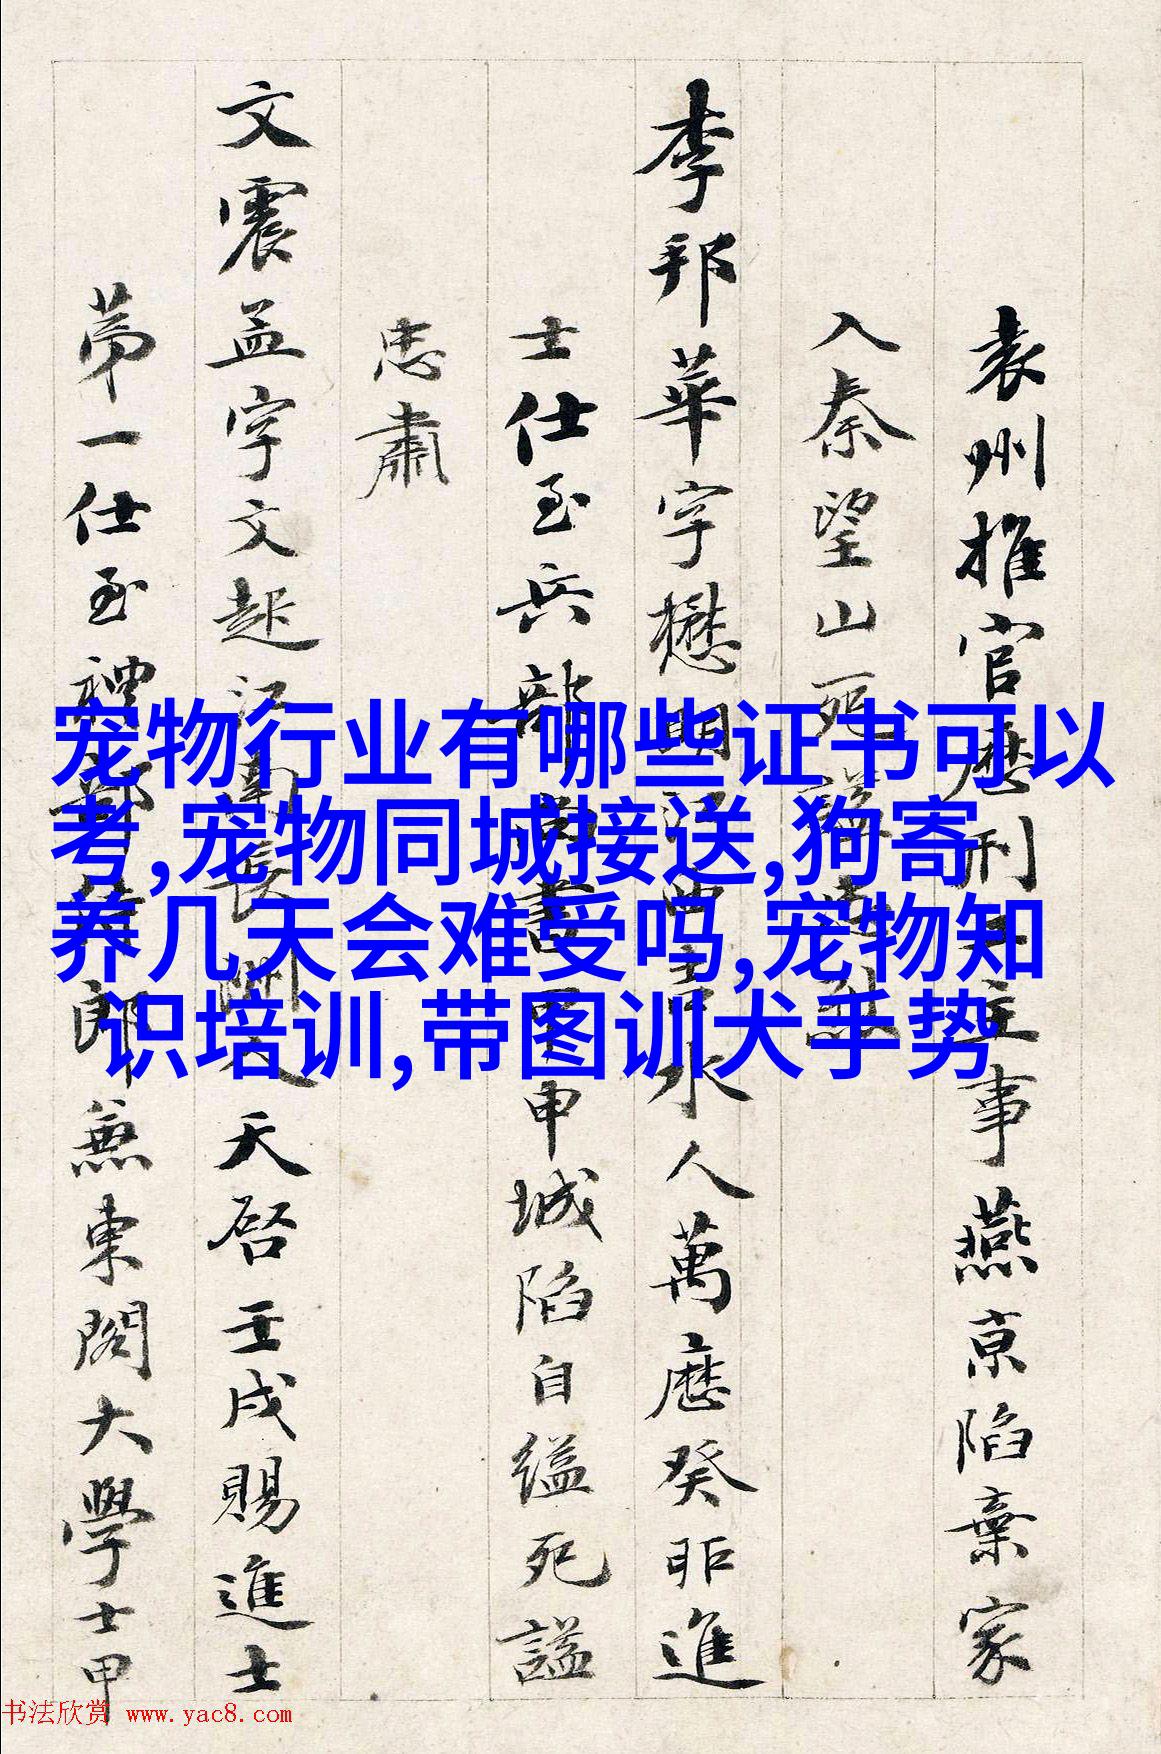 袁州推官厯刑主事燕京陷棄家
入秦望山死諡
李邦華字懋明江西吉水人萬厯癸卯進
士仕至兵部尚書甲申城陷自縊死諡
忠肅
文震孟字文起江南長洲人天啓壬戌賜進士
第一仕至禮部侍郎兼東閣大學士甲
宠物行业有哪些证书可以
考,宠物同城接送,狗寄
养几天会难受吗,宠物知
识培训,带图训犬手势
书法欣赏 www.yac8.com